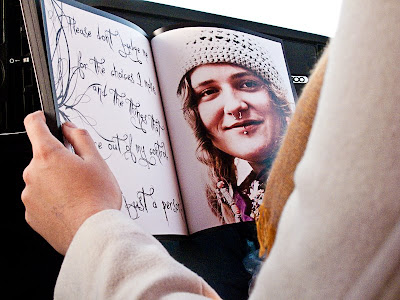 Please don't judge me
for the choices I make
and the things that
out of my control
just a